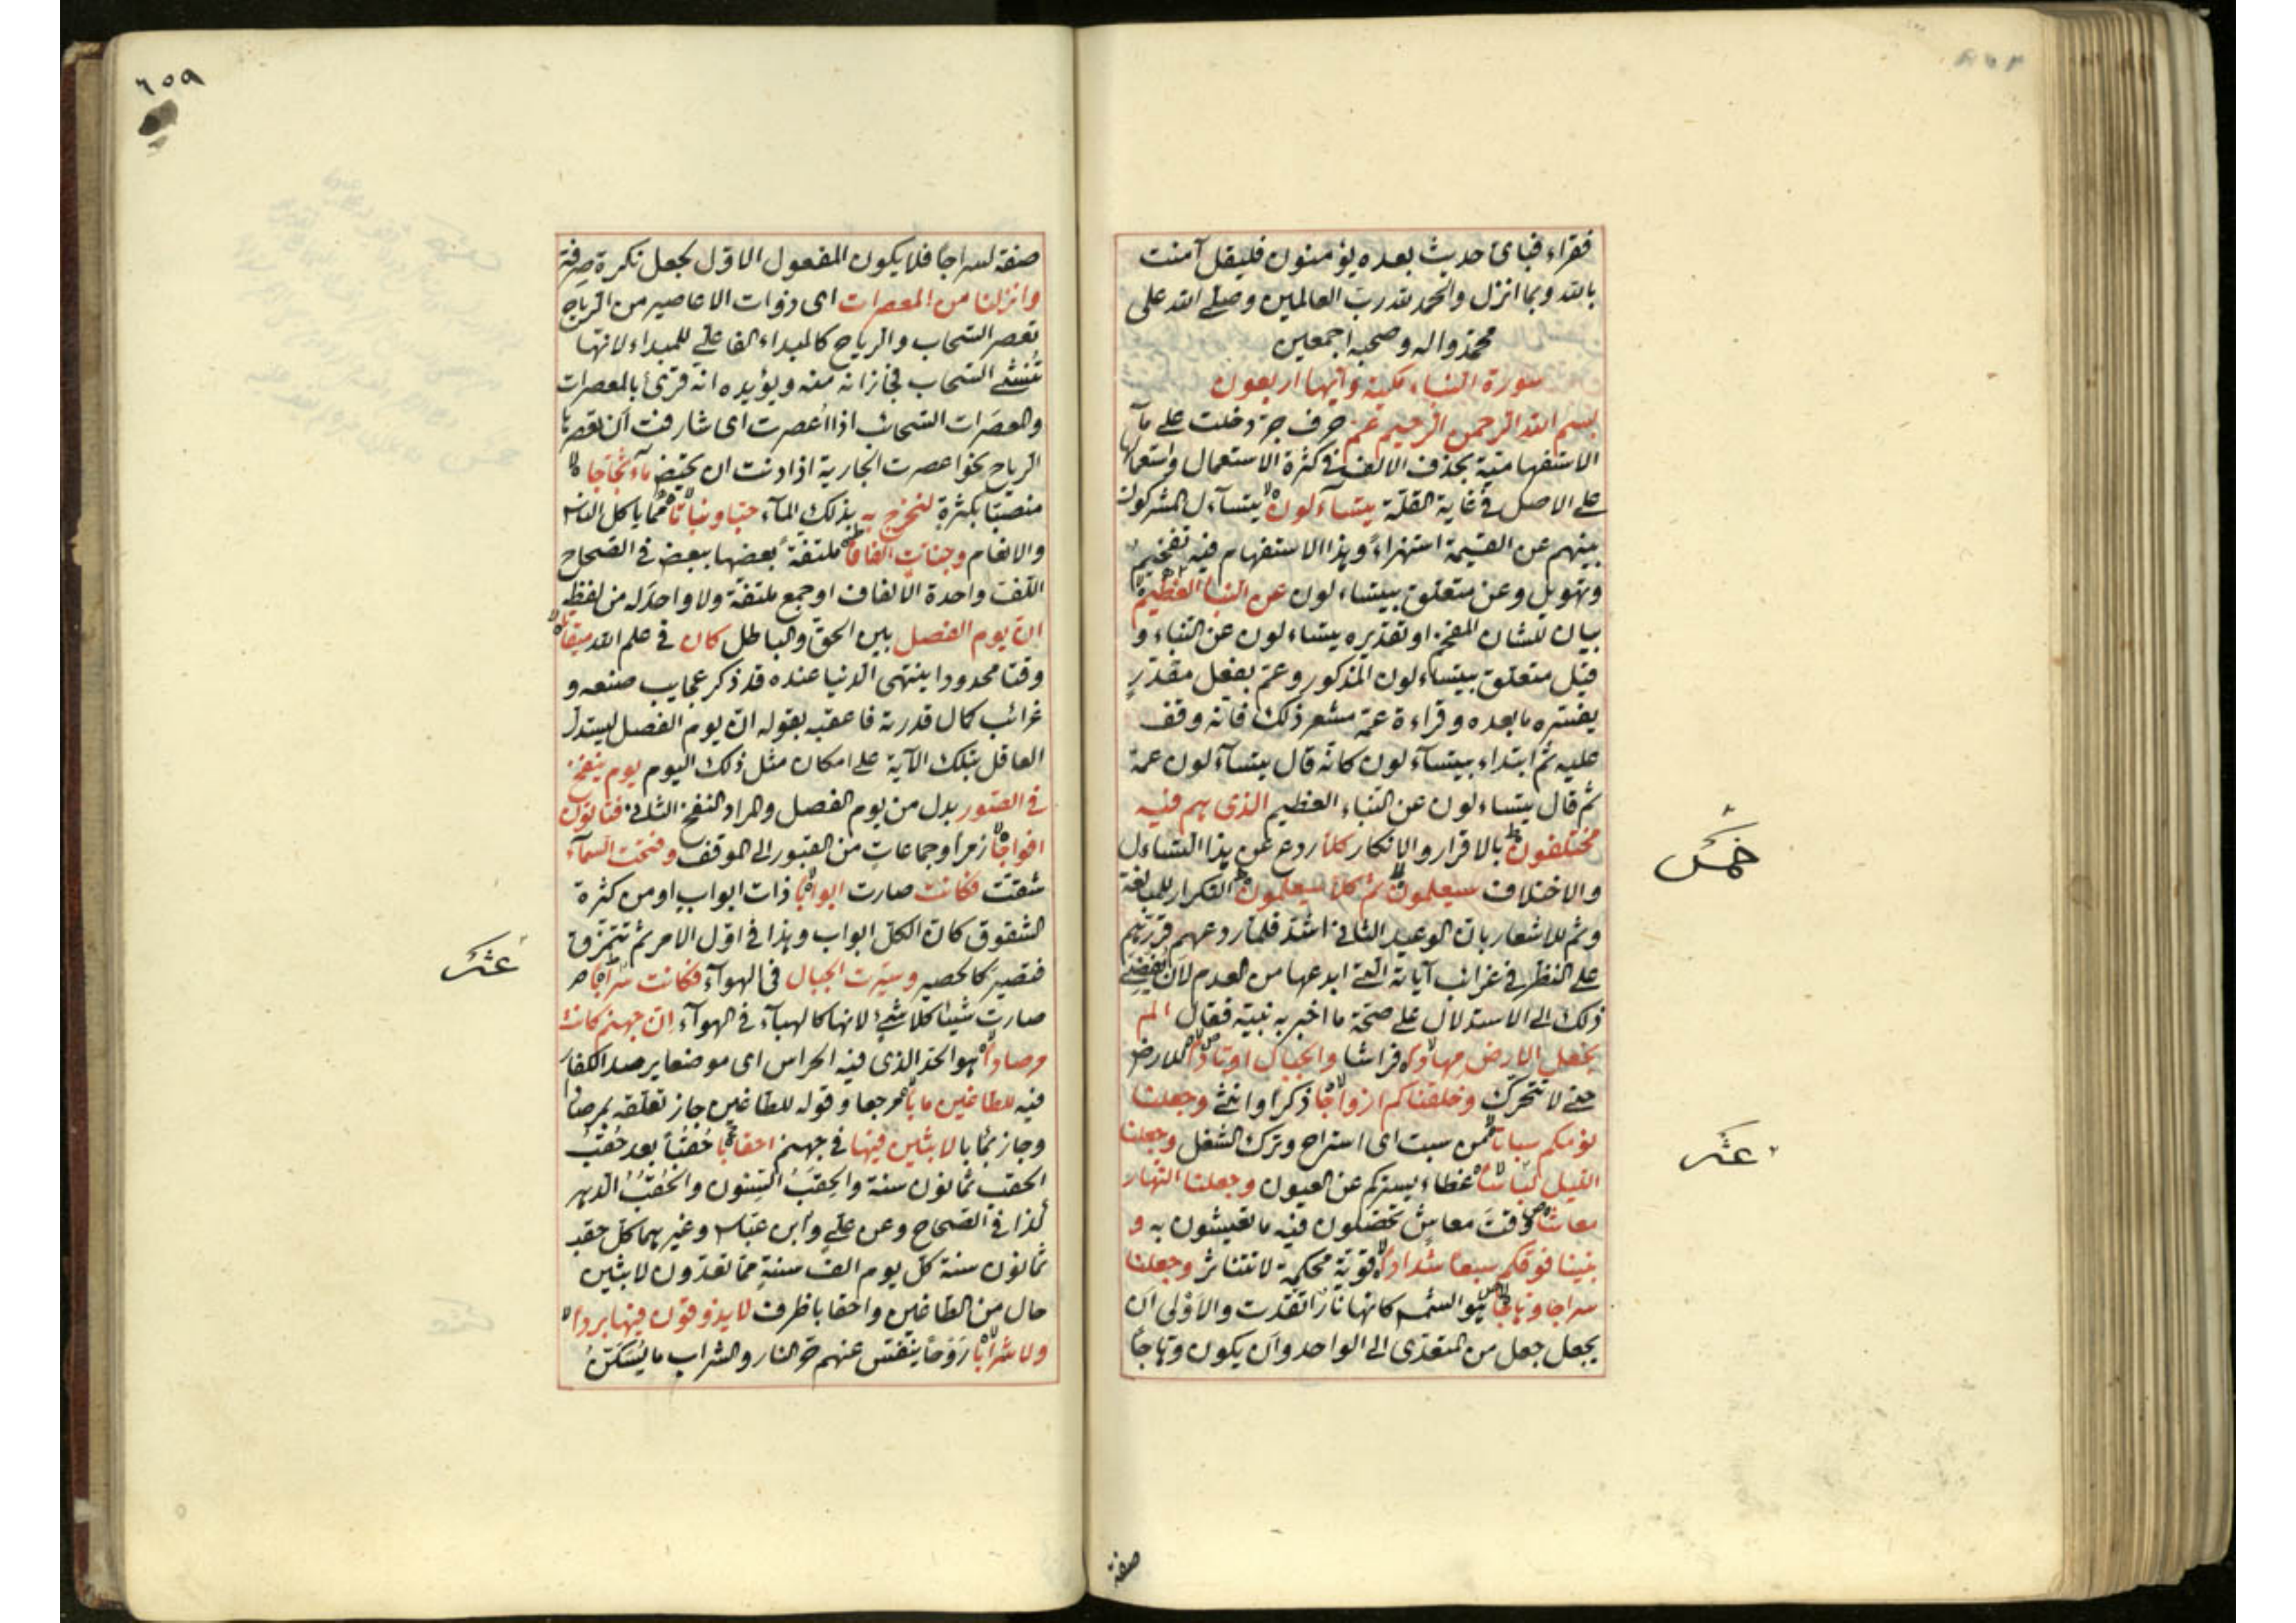 فقراء فباى حديث بعده يؤمنون فليقل آمنت
بالله وبما انزل والحمد لله رب العالمين وصلى الله على
محمد واله وصحبه اجمعين
سورة النباء مكية وآيها اربعون
بسم الله الرحمن الرحيم عم حرف جر دخلت على ما
الاستفهامية بحذف الالف فى كثرة الاستعمال واستعمالها
على الاصل فى غاية القلة يتساءلون يتساءل المشركون
بينهم عن القيمة استهزاءً وهذا الاستفهام فيه تفخيم
وتهويل وعن متعلق بيتساءلون عن النبأ العظيم
بيان للشان المفخم او تقديره يتساءلون عن النباء و
قيل متعلق بيتساءلون المذكور وعم بفعل مقدر
يفسره ما بعده وقراءة عمه مشعر ذلك فانه وقف
عليه ثم ابتداء بيتساءلون كانه قال يتساءلون عمه
ثم قال يتساءلون عن النباء العظيم الذى هم فيه
مختلفون بالاقرار والانكار كلا ردع عن هذا التساءل
والاختلاف سيعلمون ثم كلا سيعلمون التكرار للمبالغة
وثم للاشعار بان الوعيد الثانى اشد فلما ردعهم قررهم
على النظر فى غرائب آياته التى ابدعها من العدم لان يفضى
ذلك الى الاستدلال على صحة ما اخبر به نبيه فقال الم
نجعل الارض مهادا فراشا والجبال اوتادا للارض
حتى لا تتحرك وخلقناكم ازواجا ذكرا وانثى وجعلنا
نومكم سباتا من سبت اى استراح وترك الشغل وجعلنا
الليل لباسا غطاء يستركم عن العيون وجعلنا النهار
معاشا وقت معاش تحصلون فيه ما تعيشون به و
بنينا فوقكم سبعا شدادا قوية محكمة لا تتناثر وجعلنا
سراجا وهاجا هو الشمس كانها نار اتقدت والاولى ان
يجعل جعل من المتعدى الى الواحد وان يكون وهاجا
صفة
خمس
عشر
٦٥٩
صفة لسراجا فلا يكون المفعول الاول لجعل نكرة صرفة
وانزلنا من المعصرات اى ذوات الاعاصير من الرياح
تعصر السحاب والرياح كالمبداء الفاعلى للمبداء لانها
تنشئ السحاب فجاز انه منه ويؤيده انه قرئ بالمعصرات
والمعصرات السحائب اذا اعصرت اى شارفت ان تعصرها
الرياح نحو اعصرت الجارية اذا دنت ان تحيض ماء ثجاجا
منصبا بكثرة لنخرج به بذلك الماء حبا ونباتا مما ياكل الناس
والانعام وجنات الفافا ملتفة بعضها ببعض فى الصحاح
اللف واحدة الالفاف او جمع ملتفة ولا واحد له من لفظه
ان يوم الفصل بين الحق والباطل كان فى علم الله ميقاتا
وقتا محدودا ينتهى الدنيا عنده قد ذكر عجايب صنعه و
غرائب كمال قدرته فاعقبه بقوله ان يوم الفصل ليستدل
العاقل بتلك الآية على امكان مثل ذلك اليوم يوم ينفخ
فى الصور بدل من يوم الفصل والمراد النفخ الثانى فتاتون
افواجا زمرا وجماعات من القبور الى الموقف وفتحت السماء
شقت فكانت صارت ابوابا ذات ابواب او من كثرة
الشقوق كان الكل ابواب وهذا فى اول الامر ثم تتمزق
فتصير كالحصير وسيرت الجبال فى الهواء فكانت سرابا
صارت شيئا كلا شئ لانها كالهباء فى الهواء ان جهنم كانت
مرصادا هو الحد الذى فيه الحراس اى موضعا يرصد الكفار
فيه للطاغين مابا مرجعا وقوله للطاغين جاز تعلقه بمرصادا
وجاز بمابا لابثين فيها فى جهنم احقابا حقبا بعد حقب
الحقب ثمانون سنة والحقب السنون والحقب الدهر
كذا فى الصحاح وعن على وابن عباس وغيرهما كل حقب
ثمانون سنة كل يوم الف سنة مما تعدون لابثين
حال من الطاغين واحقابا ظرف لا يذوقون فيها بردا
ولا شرابا روحا ينفس عنهم حر النار والشراب ما يسكن
عشر